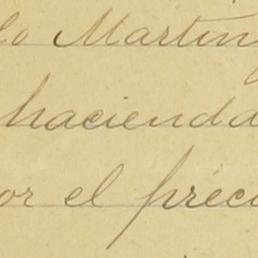 lo Martin
hacienda
or el preci